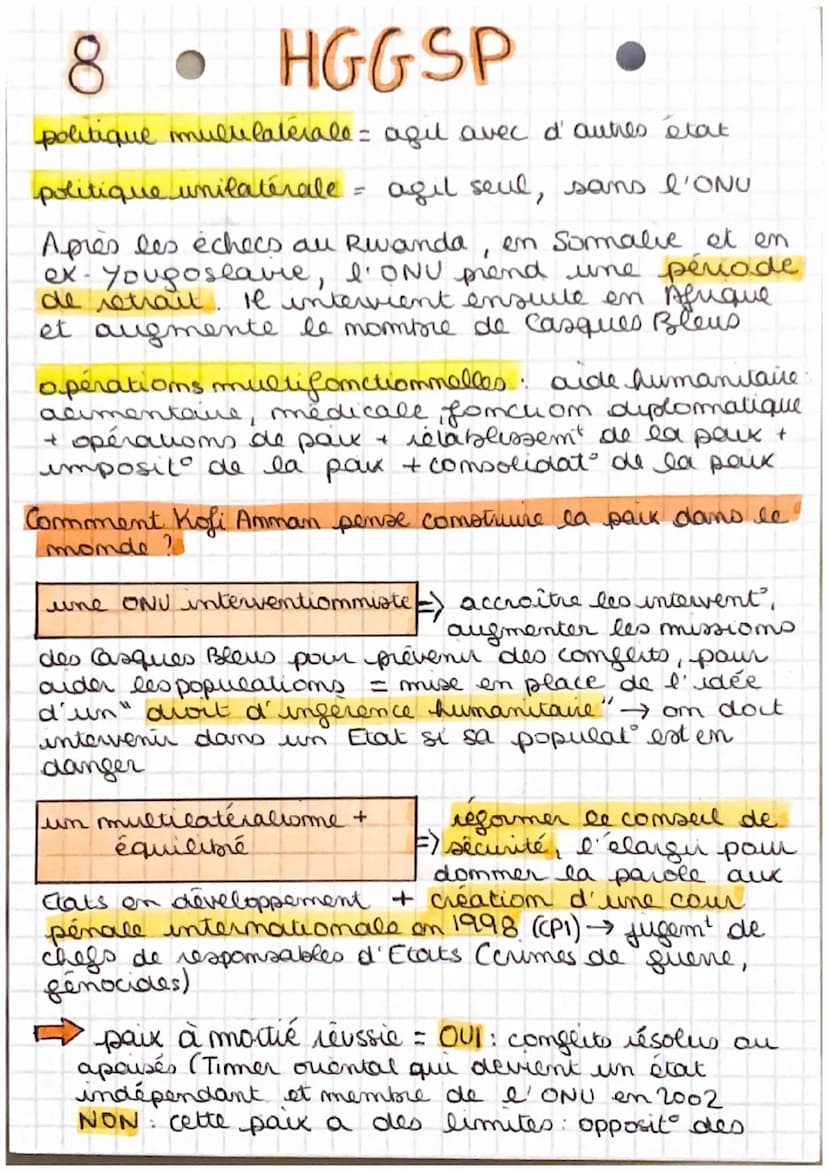 8 HGGSP
politique multilatérale = agit avec d'autres état
politique unilatérale = agit seul, sans l'ONU
Après les échecs au Rwanda, en Somalie et en
ex-Yougoslavie, l'ONU prend une période
de retrait. Il intervient ensuite en Afrique
et augmente le nombre de Casques Bleus
opérations multifonctionnelles : aide humanitaire
alimentaire, médicale, fonction diplomatique
+ opérations de paix + rétablissemt de la paix +
imposit° de la paix + consolidat° de la paix
Comment Kofi Annan pense construire la paix dans le
monde ?
une ONU interventionniste => accroître les intervent°,
augmenter les missions
des Casques Bleus pour prévenir des conflits, pour
aider les populations = mise en place de l'idée
d'un "droit d'ingérence humanitaire" → on doit
intervenir dans un Etat si sa populat° est en
danger
un multilatéralisme + => réformer le conseil de
équilibré sécurité, l'élargir pour
donner la parole aux
Etats en développement + création d'une cour
pénale internationale en 1998 (CPI) → jugemt de
chefs de responsables d'Etats (crimes de guerre,
génocides)
⇒ paix à moitié réussie = OUI : conflits résolus ou
apaisés (Timor oriental qui devient un état
indépendant et membre de l'ONU en 2002
NON : cette paix a des limites : opposit° des